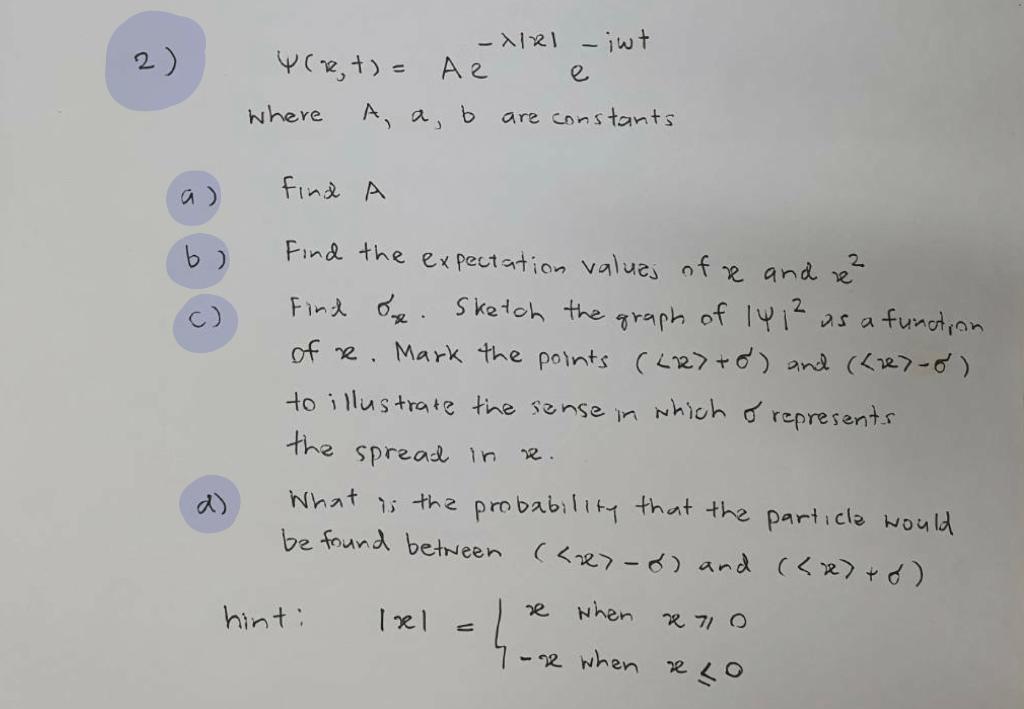 2) Ψ(x,t) = A e^{-λ|x|} e^{-iωt}
where A, a, b are constants
a) find A
b) Find the expectation values of x and x²
c) Find σₓ. Sketch the graph of |Ψ|² as a function
of x. Mark the points (<x>+σ) and (<x>-σ)
to illustrate the sense in which σ represents
the spread in x.
d) What is the probability that the particle would
be found between (<x>-σ) and (<x>+σ)
hint: |x| = { x when x ≥ 0
-x when x ≤ 0